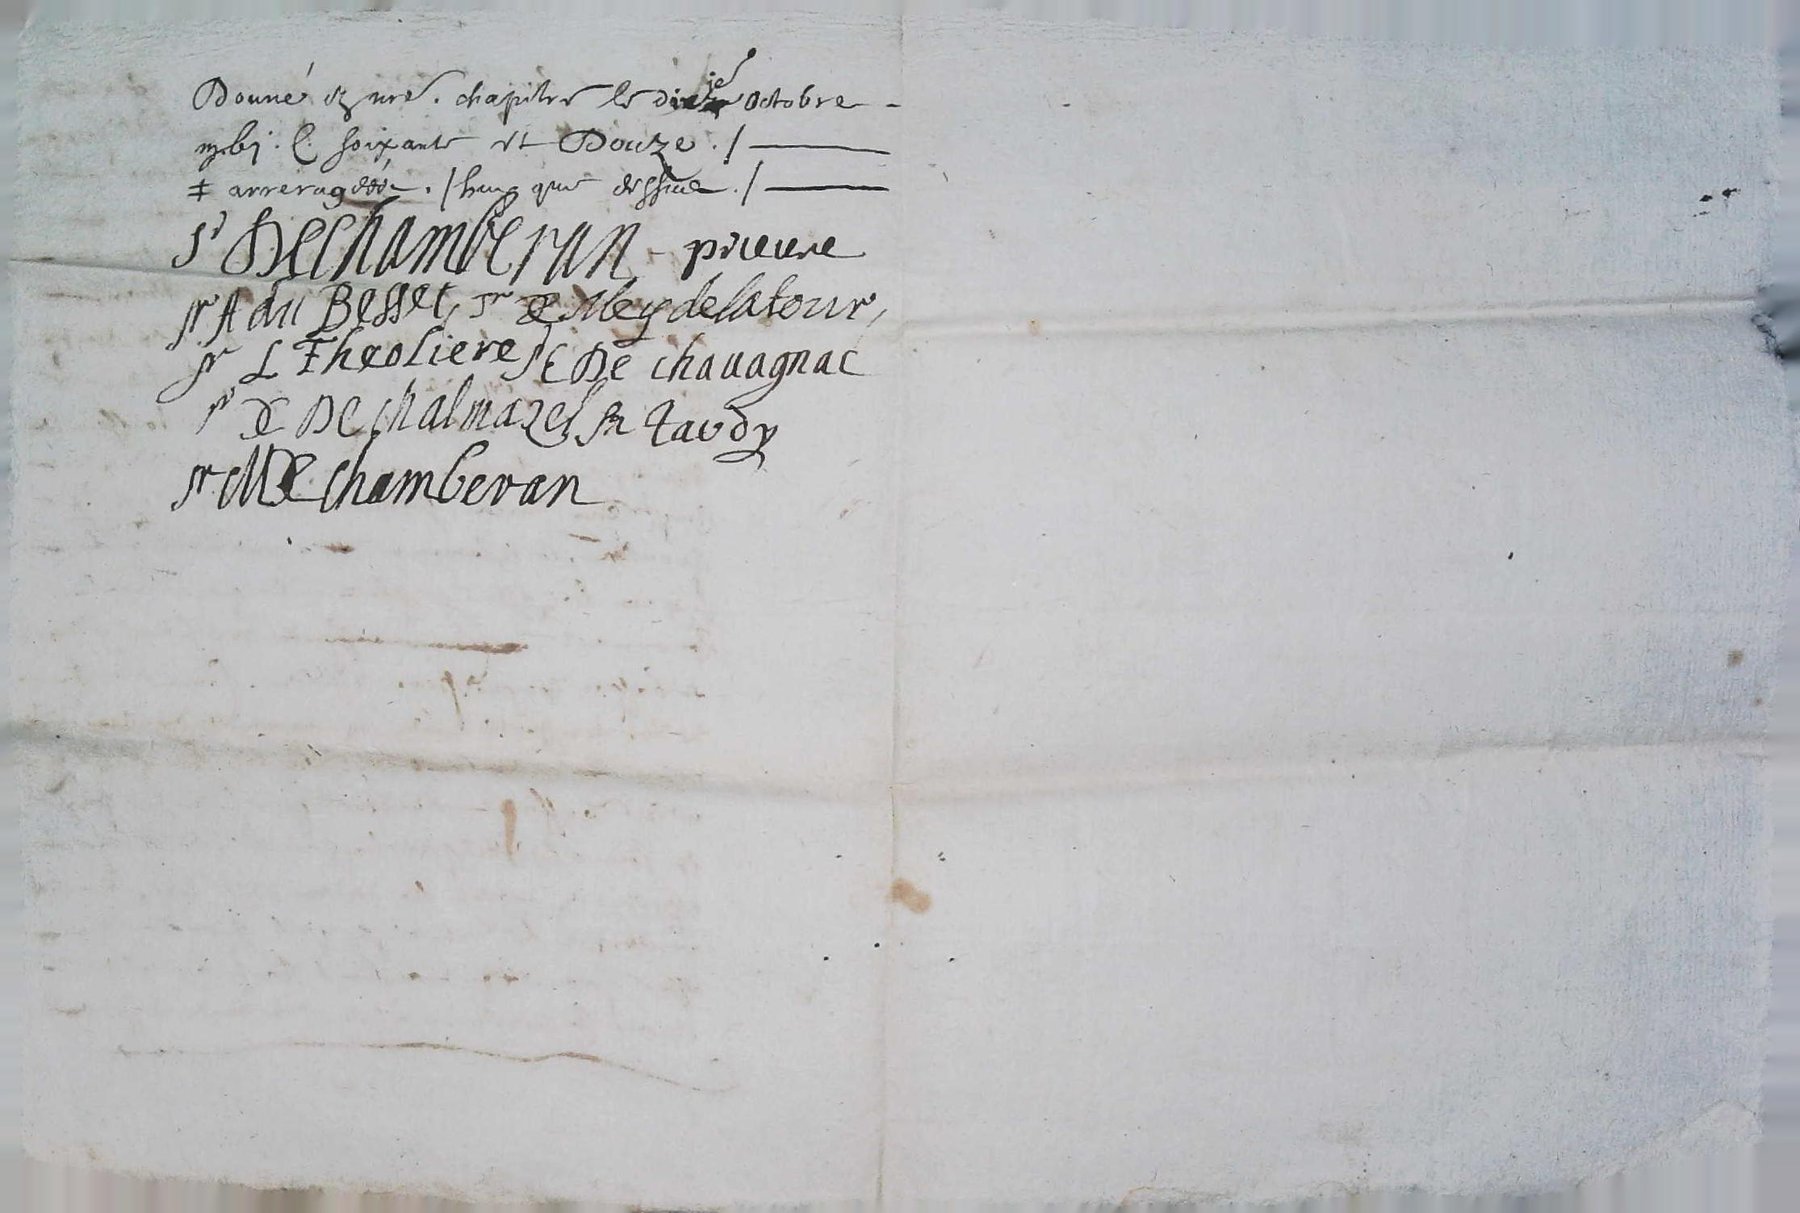 Donné en nre. chapitre le dixie octobre -
mvj. C. soixante et Douze ./
‡ arrerages ./ que dessus ./
Sr DeChamberan - prieure
sr A du Besset, sr de Mey de la tour,
sr L Theoliere S C De chavagnac
sr De chalmazel sr
sr M De chamberan